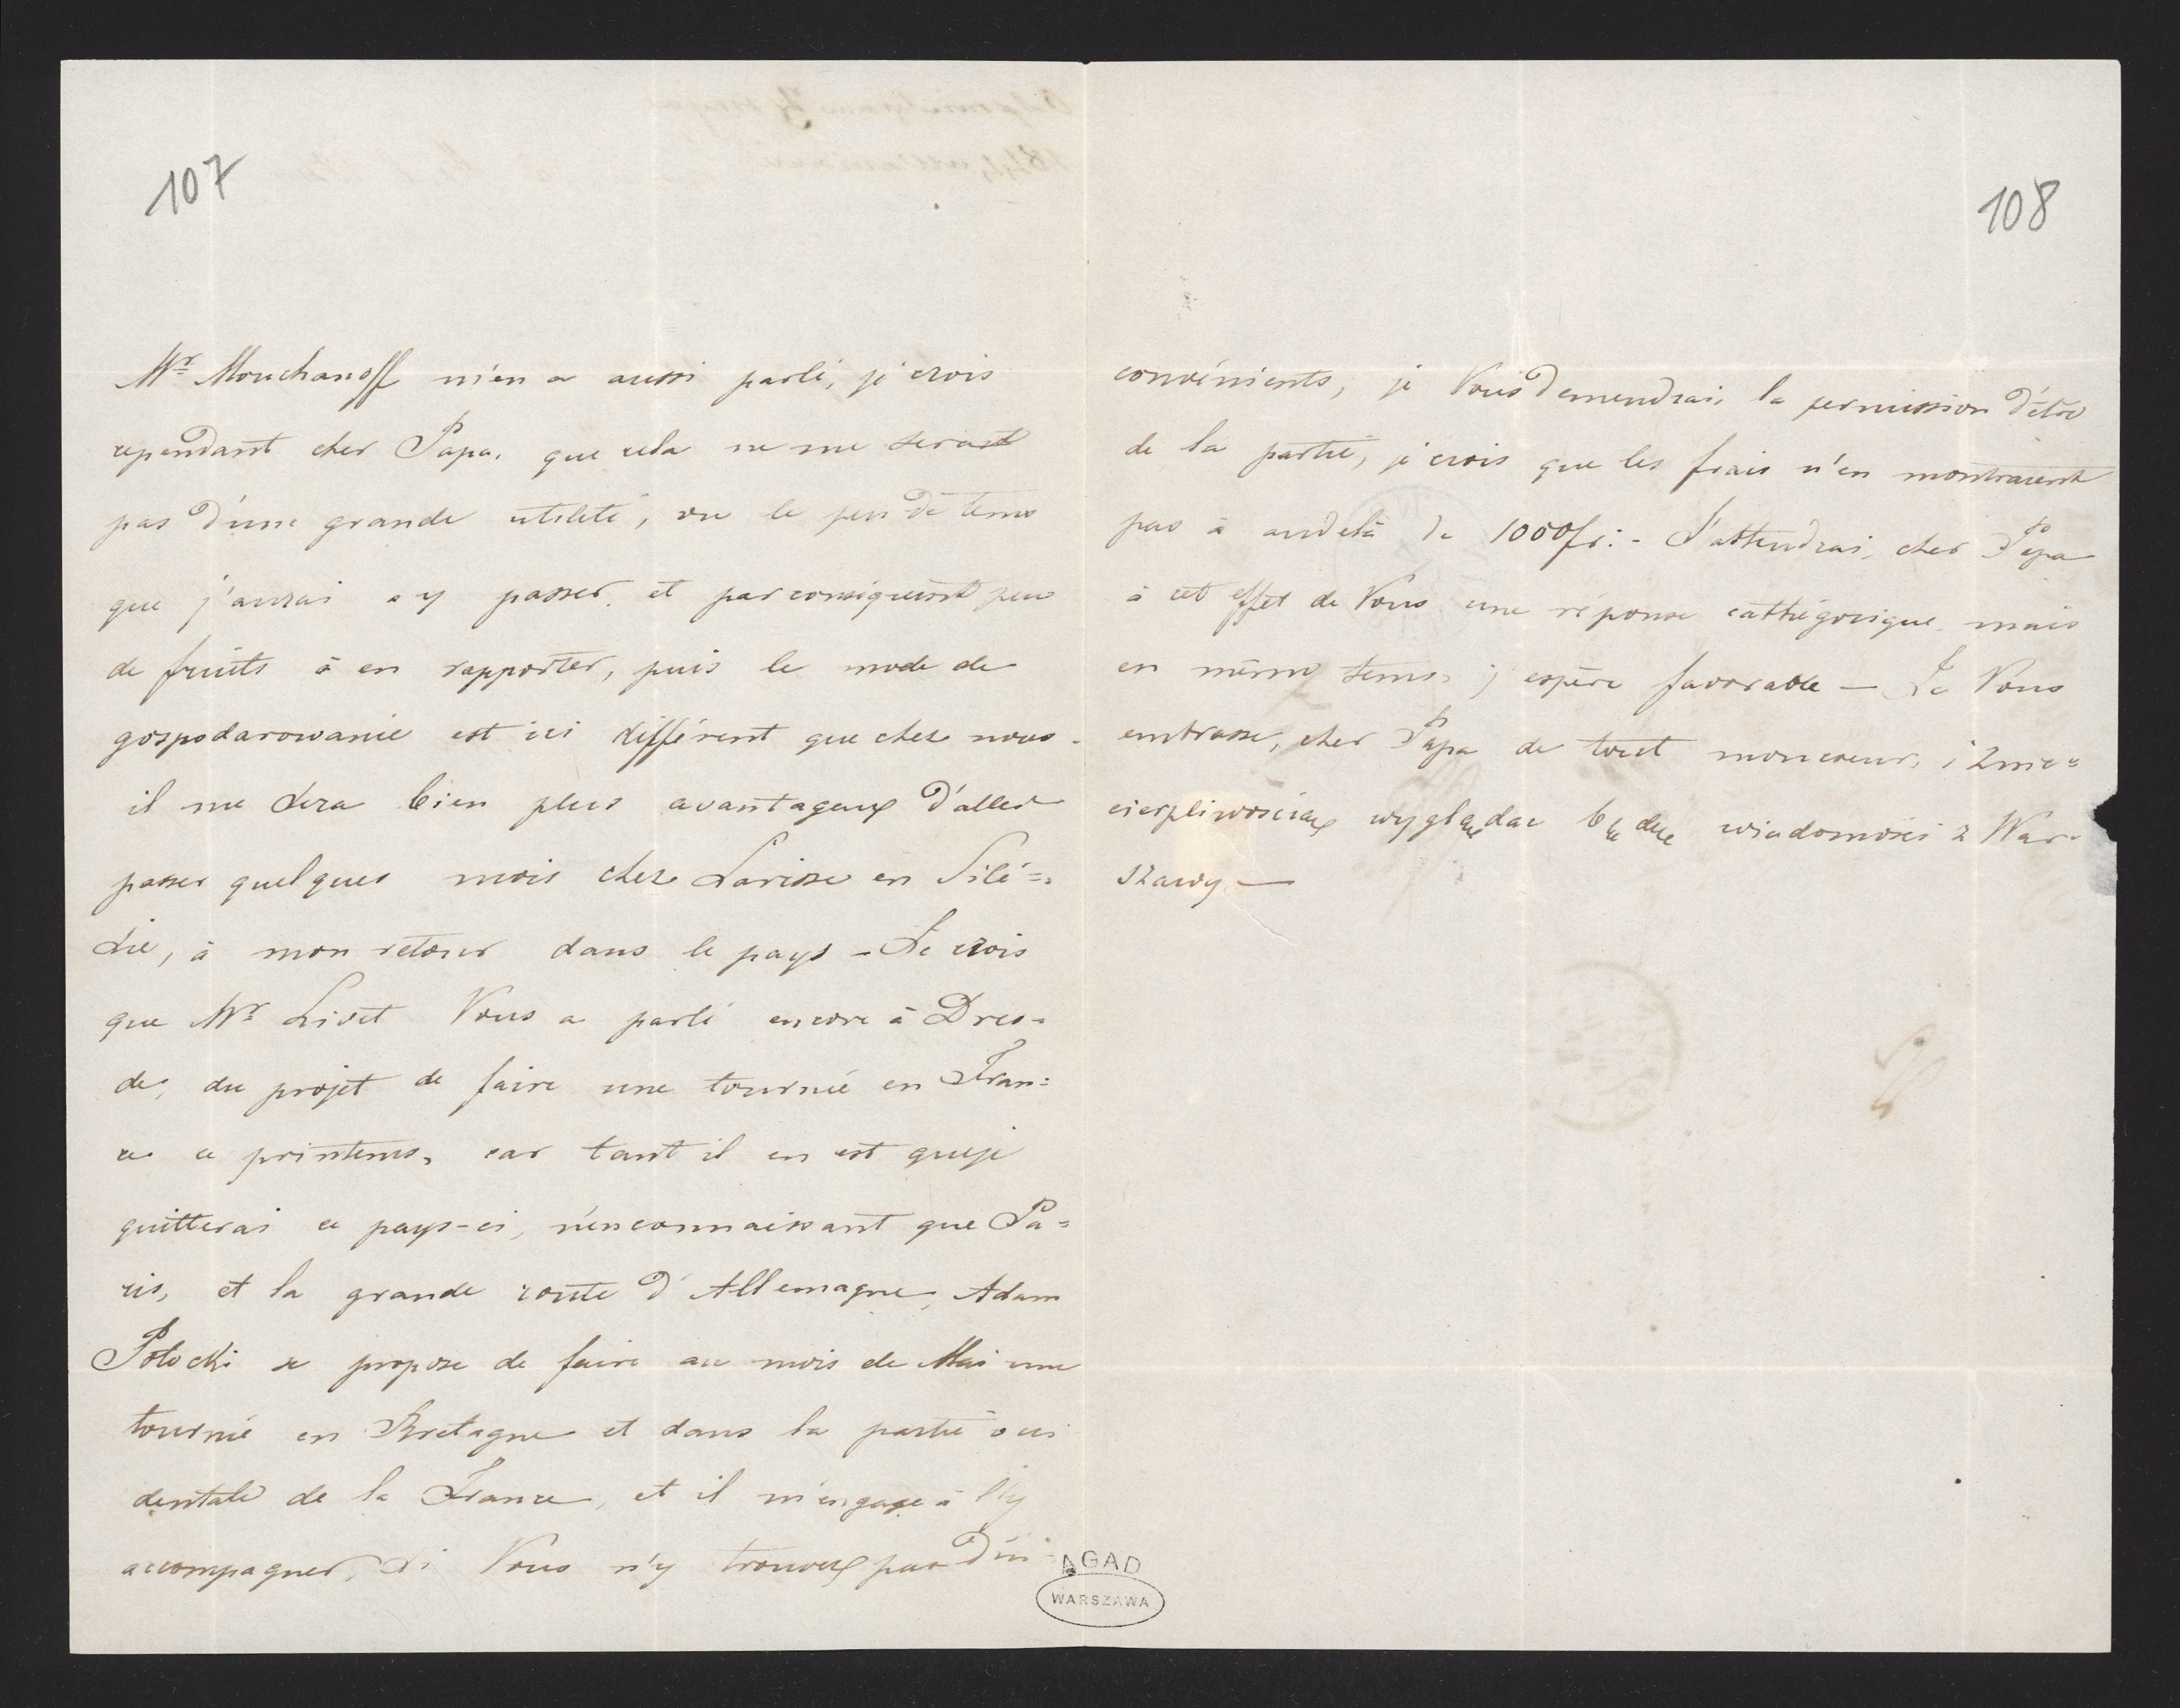 107
Mr Mouchanoff m'en a aussi parlé, je crois
cependant cher Papa, que cela ne me serait
pas d'une grande utilité, vu le peu de tems
que j'aurai a y passer, et par conséquent peu
de fruits à en rapporter, puis le mode de
gospodarowanie est ici différent que chez nous -
il me sera bien plus avantageux d'aller
passer quelques mois chez Larisse en Silé=
sie, à mon retour dans le pays - Je crois
que Mr Livet Vous a parlé encore à Dres=
de, du projet de faire une tournée en Fran=
ce ce printems, car tant il en est que je
quitterai ce pays-ci, n'en connaissant que Pa=
ris, et la grande route d'Allemagne, Adam
Potocki se propose de faire au mois de Mai une
tournée en Bretagne et dans la partie occi
dentale de la France, et il m'engage à l'y
accompagner, si Vous n'y trouvez pas d'in
AGAD
WARSZAWA
108
convénients, je Vous demendrai la permission d'être
de la partie, je crois que les frais n'en montraient
pas à audelà de 1000 fr: - J'attendrai, cher Papa
à cet effet de Vous une réponse cathégorique, mais
en même tems, j'espère favorable - Je Vous
embrasse, cher Papa de tout mon coeur, i z nie=
cierpliwością wyglądac będę wiadomości z War=
szawy —